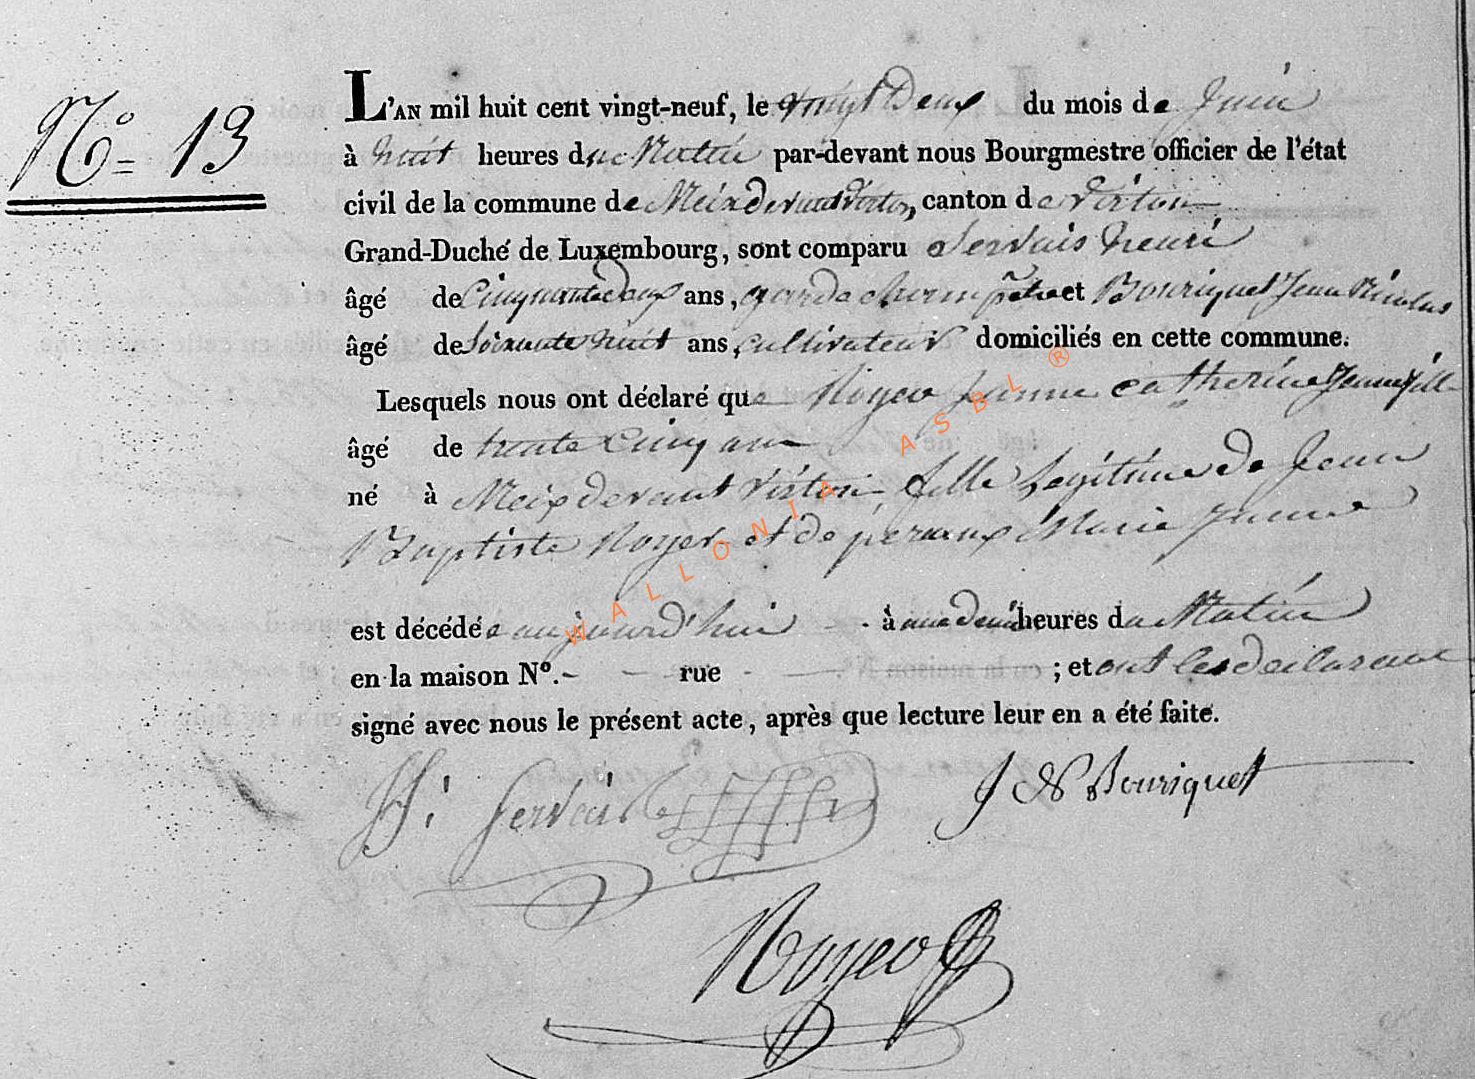 N° 13
L'AN mil huit cent vingt-neuf, le vingt Deux du mois de Juin
à huit heures du Matin par-devant nous Bourgmestre officier de l'état
civil de la commune de Meix devant Virton, canton de Virton
Grand-Duché de Luxembourg, sont comparu Servais henri
âgé de Cinquante Deux ans, garde champêtre et Bouriquet Jean Nicolas
âgé de Soixante huit ans, cultivateur domiciliés en cette commune.
Lesquels nous ont déclaré que Royer Jeanne catherine Jeune fille
âgé de trente Cinq ans
né à Meix devant Virton fille Legitime de Jean
Baptiste Royer et de Marie Jeanne
est décédée aujourd'hui à heures du Matin
en la maison N°. - - rue - - ; et ont les declarans
signé avec nous le présent acte, après que lecture leur en a été faite.
H: Servais J N Bouriquet
Royer
WALLONIA ASBL ®